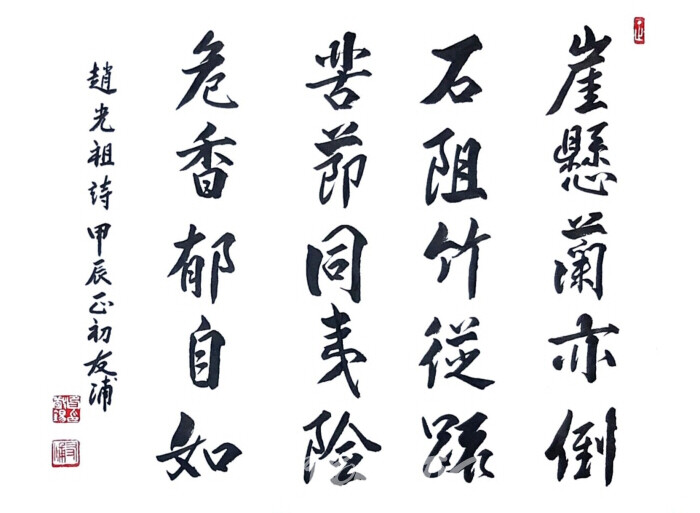 崖懸蘭亦倒
石阻竹從踈
苦節同夷險
危香郁自如
趙光祖詩 甲辰正初友浦